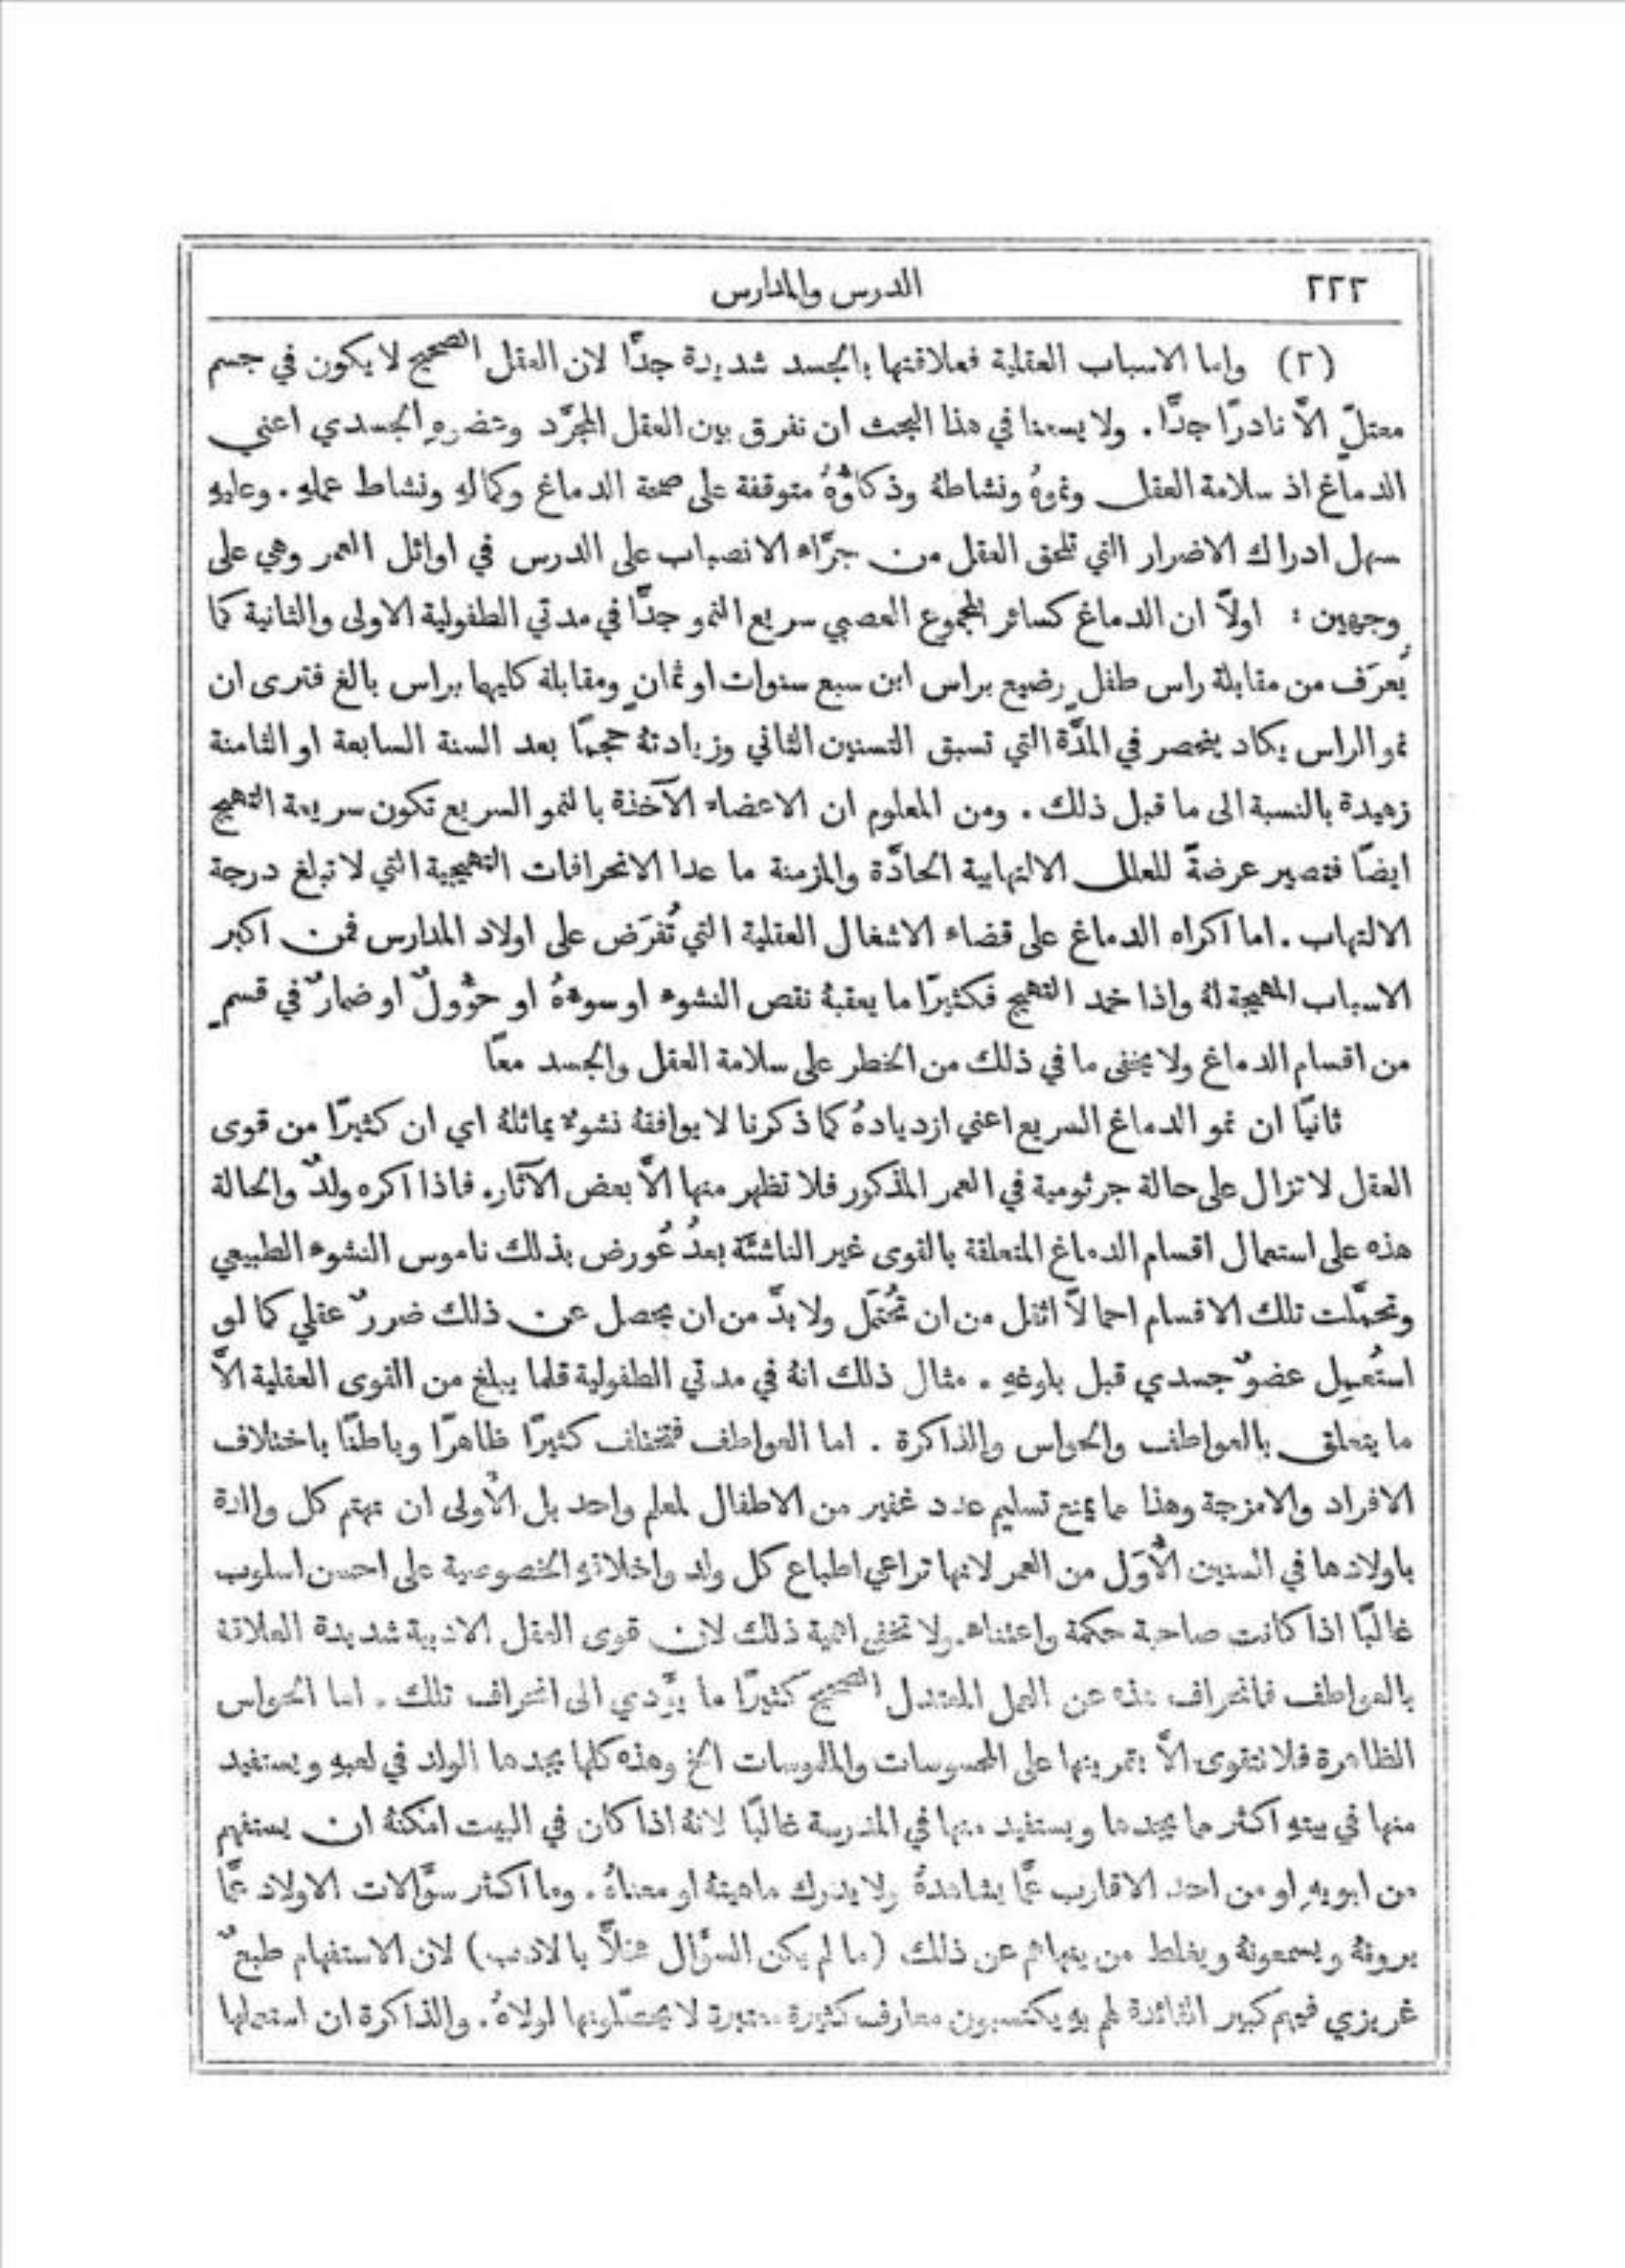 ٢٢٢
الدرس والمدارس
(٢) واما الاسباب العقلية فعلاقتها بالجسد شديدة جدًّا لان العقل الصحيح لا يكون في جسم
معتلٍّ الَّا نادرًا جدًّا. ولا يسعنا في هذا البحث ان نفرق بين العقل المجرَّد وعضوهِ الجسدي اعني
الدماغ اذ سلامة العقل ونموهُ ونشاطهُ وذكاؤُهُ متوقفة على صحة الدماغ وكمالهِ ونشاط عملهِ. وعليهِ
سهل ادراك الاضرار التي تلحق العقل من جرَّاء الانصباب على الدرس في اوائل العمر وهي على
وجهين: اولًا ان الدماغ كسائر المجموع العصبي سريع النمو جدًّا في مدتي الطفولية الاولى والثانية كما
يُعرَف من مقابلة راس طفلٍ رضيع براس ابن سبع سنوات او ثمانٍ ومقابلة كليهما براس بالغ فترى ان
نمو الراس يكاد ينحصر في المدَّة التي تسبق التسنين الثاني وزيادتهُ حجمًا بعد السنة السابعة او الثامنة
زهيدة بالنسبة الى ما قبل ذلك. ومن المعلوم ان الاعضاء الآخذة بالنمو السريع تكون سريعة التهيج
ايضًا فتصير عرضةً للعلل الالتهابية الحادَّة والمزمنة ما عدا الانحرافات التهيجية التي لا تبلغ درجة
الالتهاب. اما اكراه الدماغ على قضاء الاشغال العقلية التي تُفرَض على اولاد المدارس فمن اكبر
الاسباب المهيجة لهُ واذا خمد التهيج فكثيرًا ما يعقبهُ نقص النشوء او سوءهُ او حؤُولٌ او ضمارٌ في قسمٍ
من اقسام الدماغ ولا يخفى ما في ذلك من الخطر على سلامة العقل والجسد معًا
ثانيًا ان نمو الدماغ السريع اعني ازديادهُ كما ذكرنا لا يوافقهُ نشوءٌ يماثلهُ اي ان كثيرًا من قوى
العقل لا تزال على حالة جرثومية في العمر المذكور فلا تظهر منها الَّا بعض الآثار. فاذا اكره ولدٌ والحالة
هذه على استعمال اقسام الدماغ المتعلقة بالقوى غير الناشئة بعدُ عُورض بذلك ناموس النشوء الطبيعي
وتحمَّلت تلك الاقسام احمالًا اثقل من ان تُحتمَل ولا بدَّ من ان يحصل عن ذلك ضررٌ عقلي كما لو
استُعمِل عضوٌ جسدي قبل بلوغهِ. مثال ذلك انهُ في مدتي الطفولية قلما يبلغ من القوى العقلية الَّا
ما يتعلق بالعواطف والحواس والذاكرة. اما العواطف فتختلف كثيرًا ظاهرًا وباطنًا باختلاف
الافراد والامزجة وهذا مما يمنع تسليم عدد غفير من الاطفال لمعلم واحد بل الأَولى ان تهتم كل والدة
باولادها في السنين الأُوَل من العمر لانها تراعي اطباع كل ولد واخلاقهِ الخصوصية على احسن اسلوب
غالبًا اذا كانت صاحبة حكمة واعتناء. ولا تخفى اهمية ذلك لان قوى العقل الادبية شديدة العلاقة
بالعواطف فانحراف هذه عن العمل المعتدل الصحيح كثيرًا ما يؤَّدي الى انحراف تلك. اما الحواس
الظاهرة فلا تتقوى الَّا بتمرينها على المحسوسات والملموسات الخ وهذه كلها يجدها الولد في لعبهِ ويستفيد
منها في بيتهِ اكثر مما يجدها ويستفيد منها في المدرسة غالبًا لانهُ اذا كان في البيت امكنهُ ان يستفهم
من ابويهِ او من احد الاقارب عمَّا يشاهدهُ ولا يدرك ماهيتهُ او معناهُ. وما اكثر سؤَالات الاولاد عمَّا
يرونهُ ويسمعونهُ ويغلط من ينهاهم عن ذلك (ما لم يكن السؤَال مخلًّا بالادب) لان الاستفهام طبعٌ
غريزي فيهم كبير الفائدة لهم بهِ يكتسبون معارف كثيرة معتبرة لا يحصّلونها لولاهُ. والذاكرة ان استعمالها